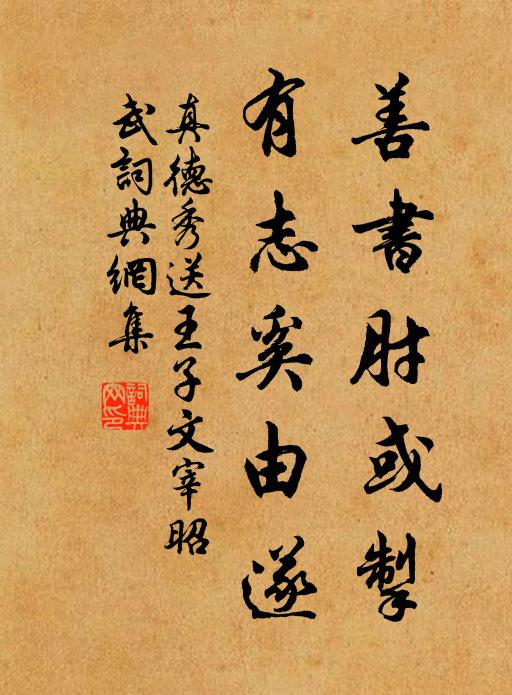 善書肘或掣
有志奚由遂
真德秀送王子文宰昭
武詞典網集
詞典网印